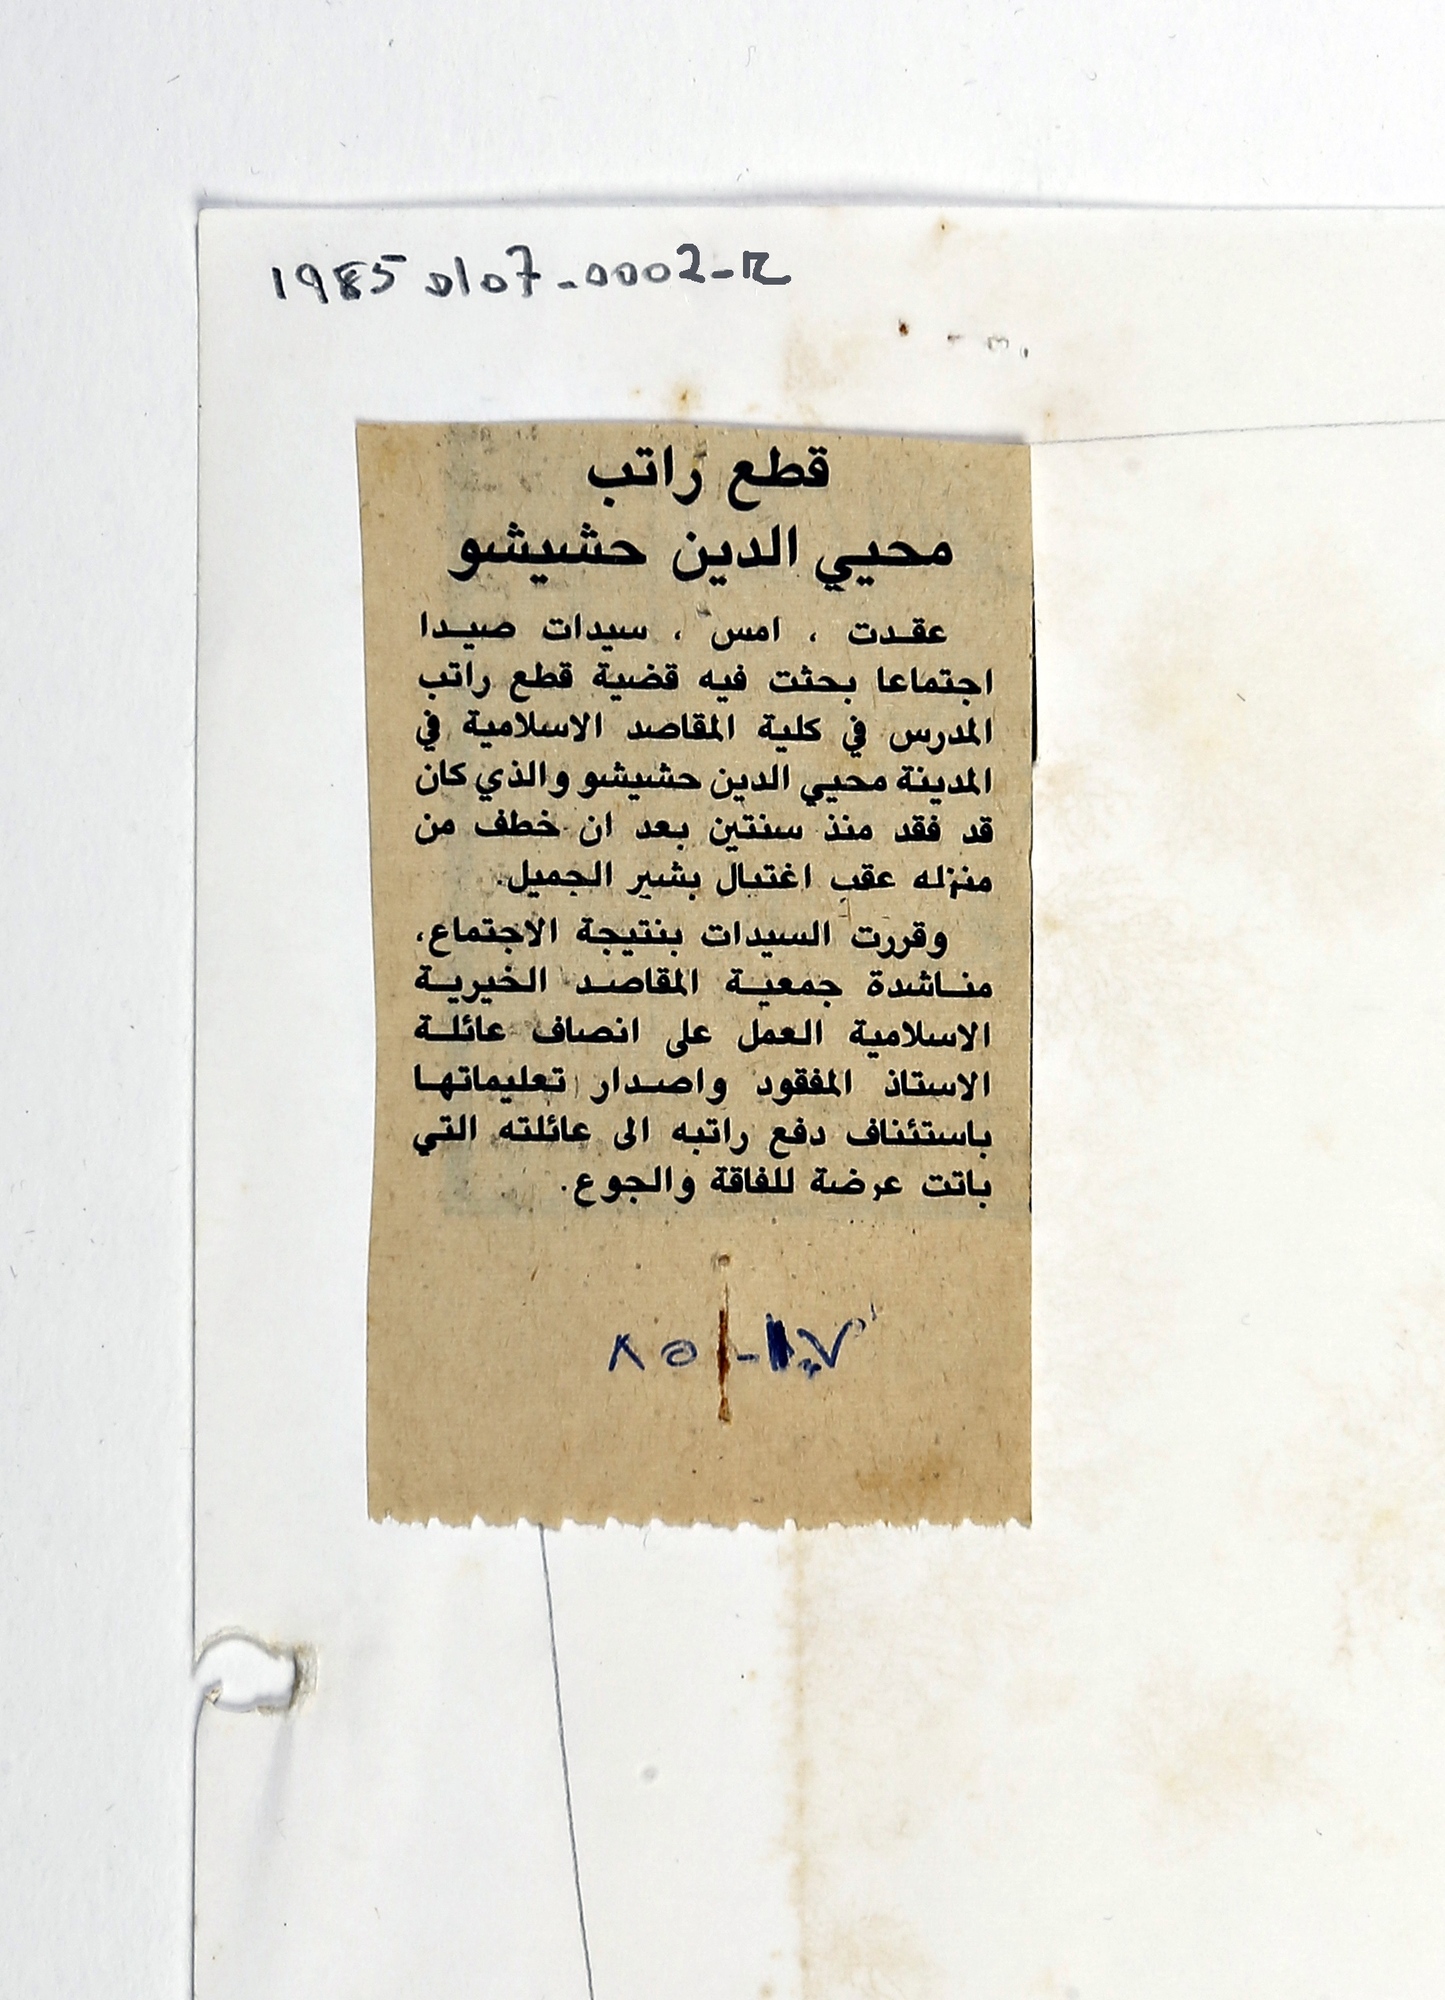 19850107-0002-R
قطع راتب
محيي الدين حشيشو
عقدت ، امس ، سيدات صيدا
اجتماعا بحثت فيه قضية قطع راتب
المدرس في كلية المقاصد الاسلامية في
المدينة محيي الدين حشيشو والذي كان
قد فقد منذ سنتين بعد ان خطف من
منزله عقب اغتيال بشير الجميل.
وقررت السيدات بنتيجة الاجتماع،
مناشدة جمعية المقاصد الخيرية
الاسلامية العمل على انصاف عائلة
الاستاذ المفقود واصدار تعليماتها
باستئناف دفع راتبه الى عائلته التي
باتت عرضة للفاقة والجوع.